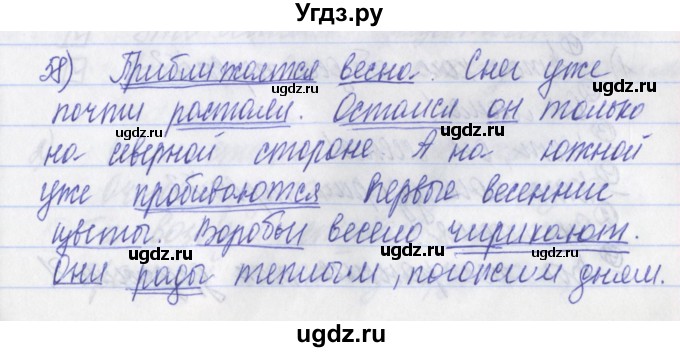 Угдз.ру
58) Приближается весна. Снег уже
почти растаял. Остался он только
на северной стороне. А на южной
уже пробиваются первые весенние
цветы. Воробьи весело чирикают.
Они рады теплым, погожим дням.
ugdz.ru ugdz.ru
ugdz.ru ugdz.ru ugdz.ru
ugdz.ru ugdz.ru
ugdz.ru ugdz.ru ugdz.ru
ugdz.ru ugdz.ru
ugdz.ru ugdz.ru ugdz.ru